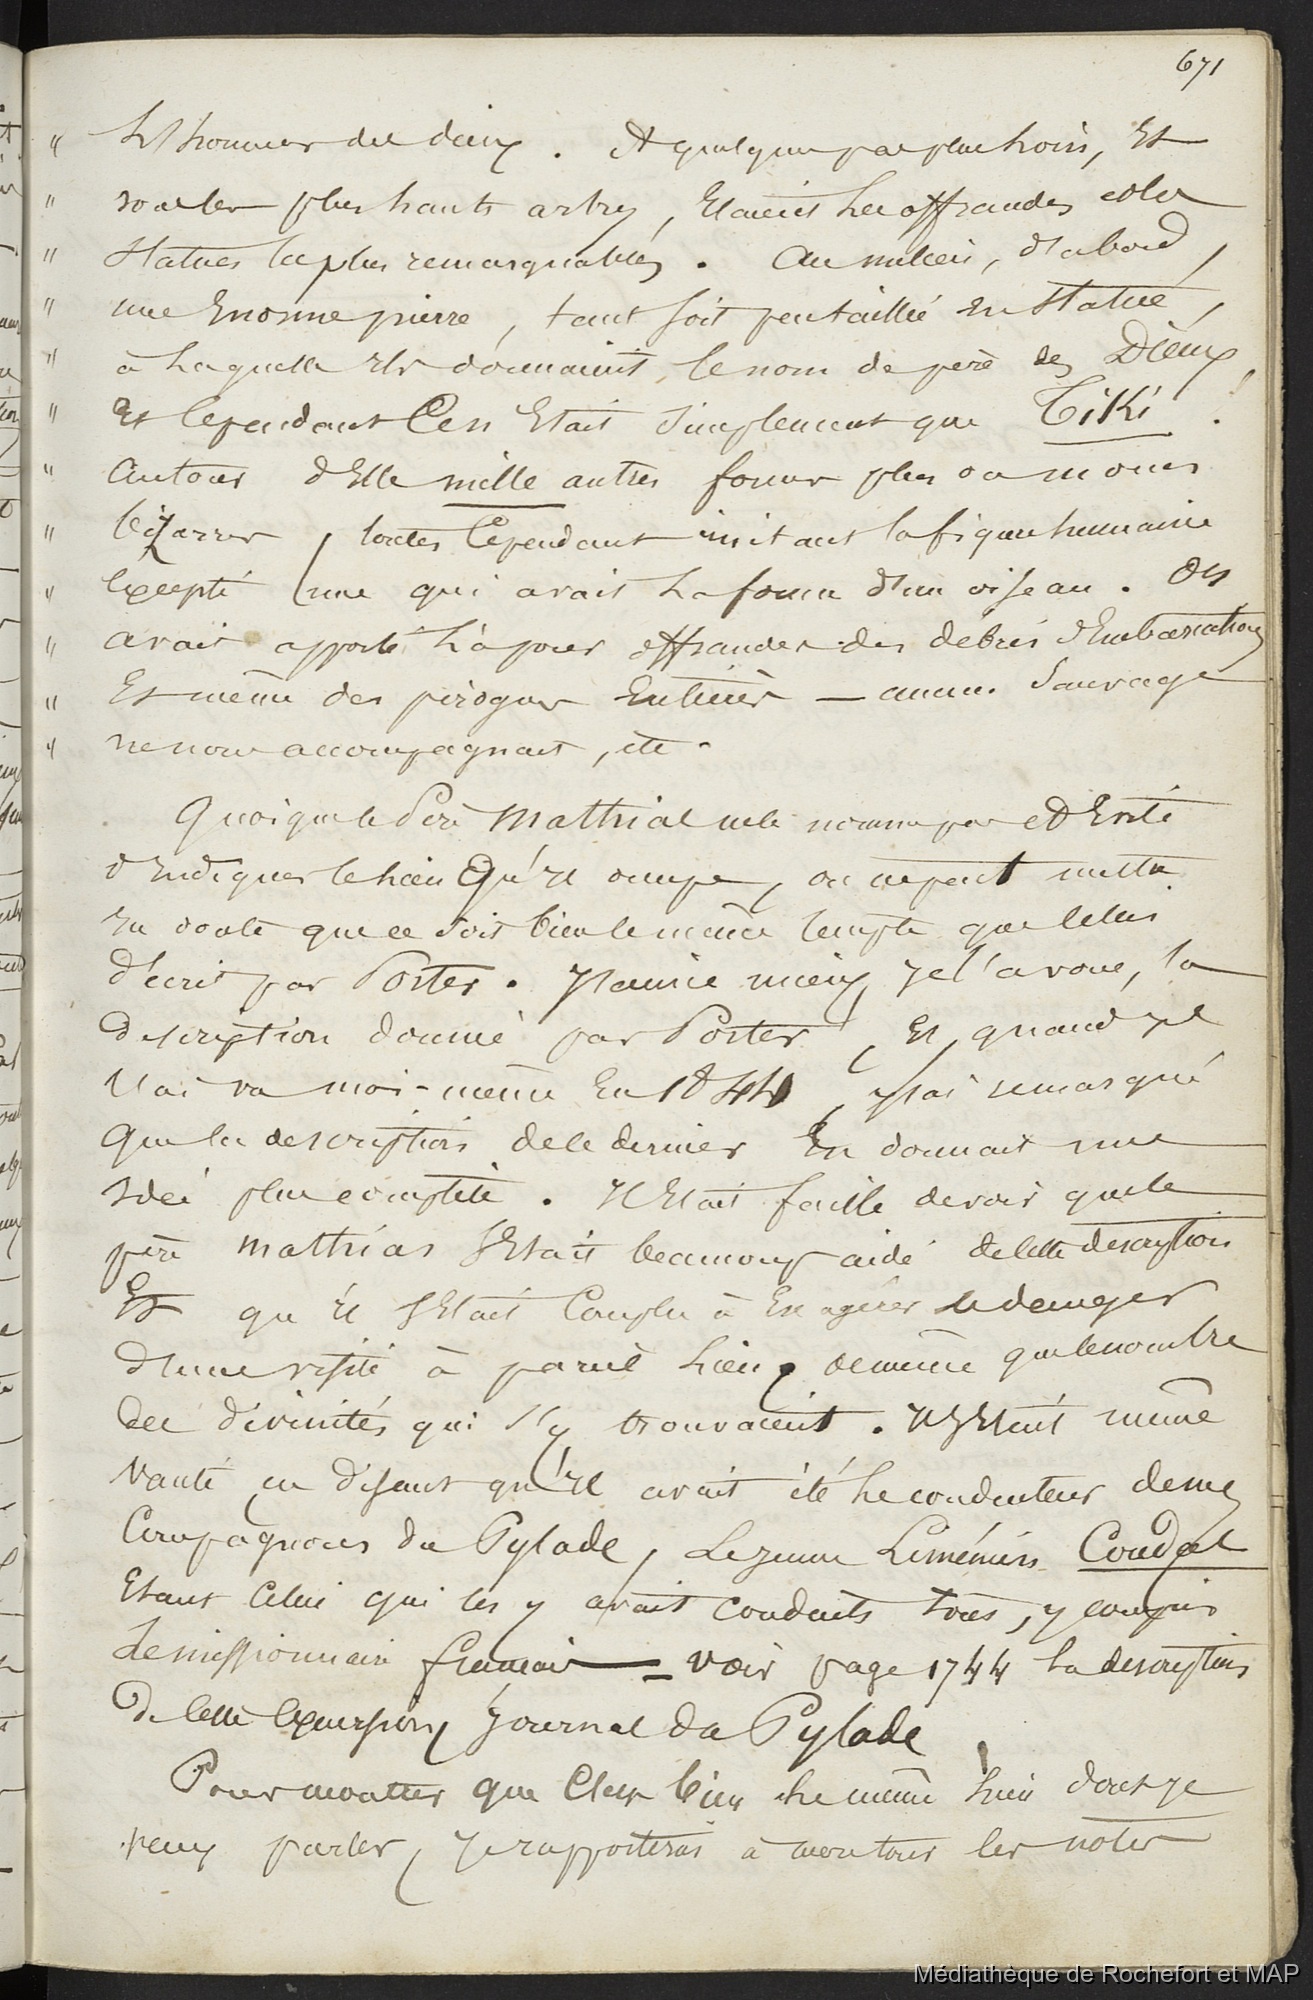 671
" L'honneur des dieux. A quelques pas plus loin, Et
" sous les plus hauts arbres, Etaient les offrandes et les
" Statues les plus remarquables. Au milieu, d'abord,
" une Enorme pierre, tant soit peu taillée en Statue,
" à laquelle ils donnaient le nom de père des Dieux,
" Et cependant Ce n'Etait simplement que TiKi !
" Autour d'Elle mille autres formes plus ou moins
" bizarres, toutes Cependant imitant la figure humaine
" Excepté une qui avait la forme d'un oiseau. On
" avait apporté là pour offrandes des débris d'Embarcations
" Et même des pirogues Entières — aucun Sauvage
" ne nous accompagnait, etc.
Quoique le Père Mathias ne le nomme pas et Evite
d'indiquer le lieu Qu'il occupe, on ne peut mettre
En doute que ce soit bien le même temple que celui
décrit par Porter. J'aime mieux, je l'avoue, la
description donnée par Porter, Et, quand je
l'ai vu moi-même En 1844, j'ai remarqué
Que la description de ce dernier En donnait une
idée plus complète. Il Etait facile de voir que le
père Mathias s'Etait beaucoup aidé de cette description
Et qu'il s'Etait Complu à Exagérer le danger
d'une visite à pareil lieu, de même que le nombre
des divinités qui s'y trouvaient. Il s'Etait même
Vanté en disant qu'il avait été le conducteur de mes
Compagnons du Pylade, Le jeune Siméniis Coudet
Etant Celui qui les y avait conduits tous, y compris
Le missionnaire français — voir page 1744 la description
De cette Excursion, Journal du Pylade
Pour montrer que C'est bien le même lieu dont je
veux parler, je rapporterai à mon tour les notes
Médiathèque de Rochefort et MAP